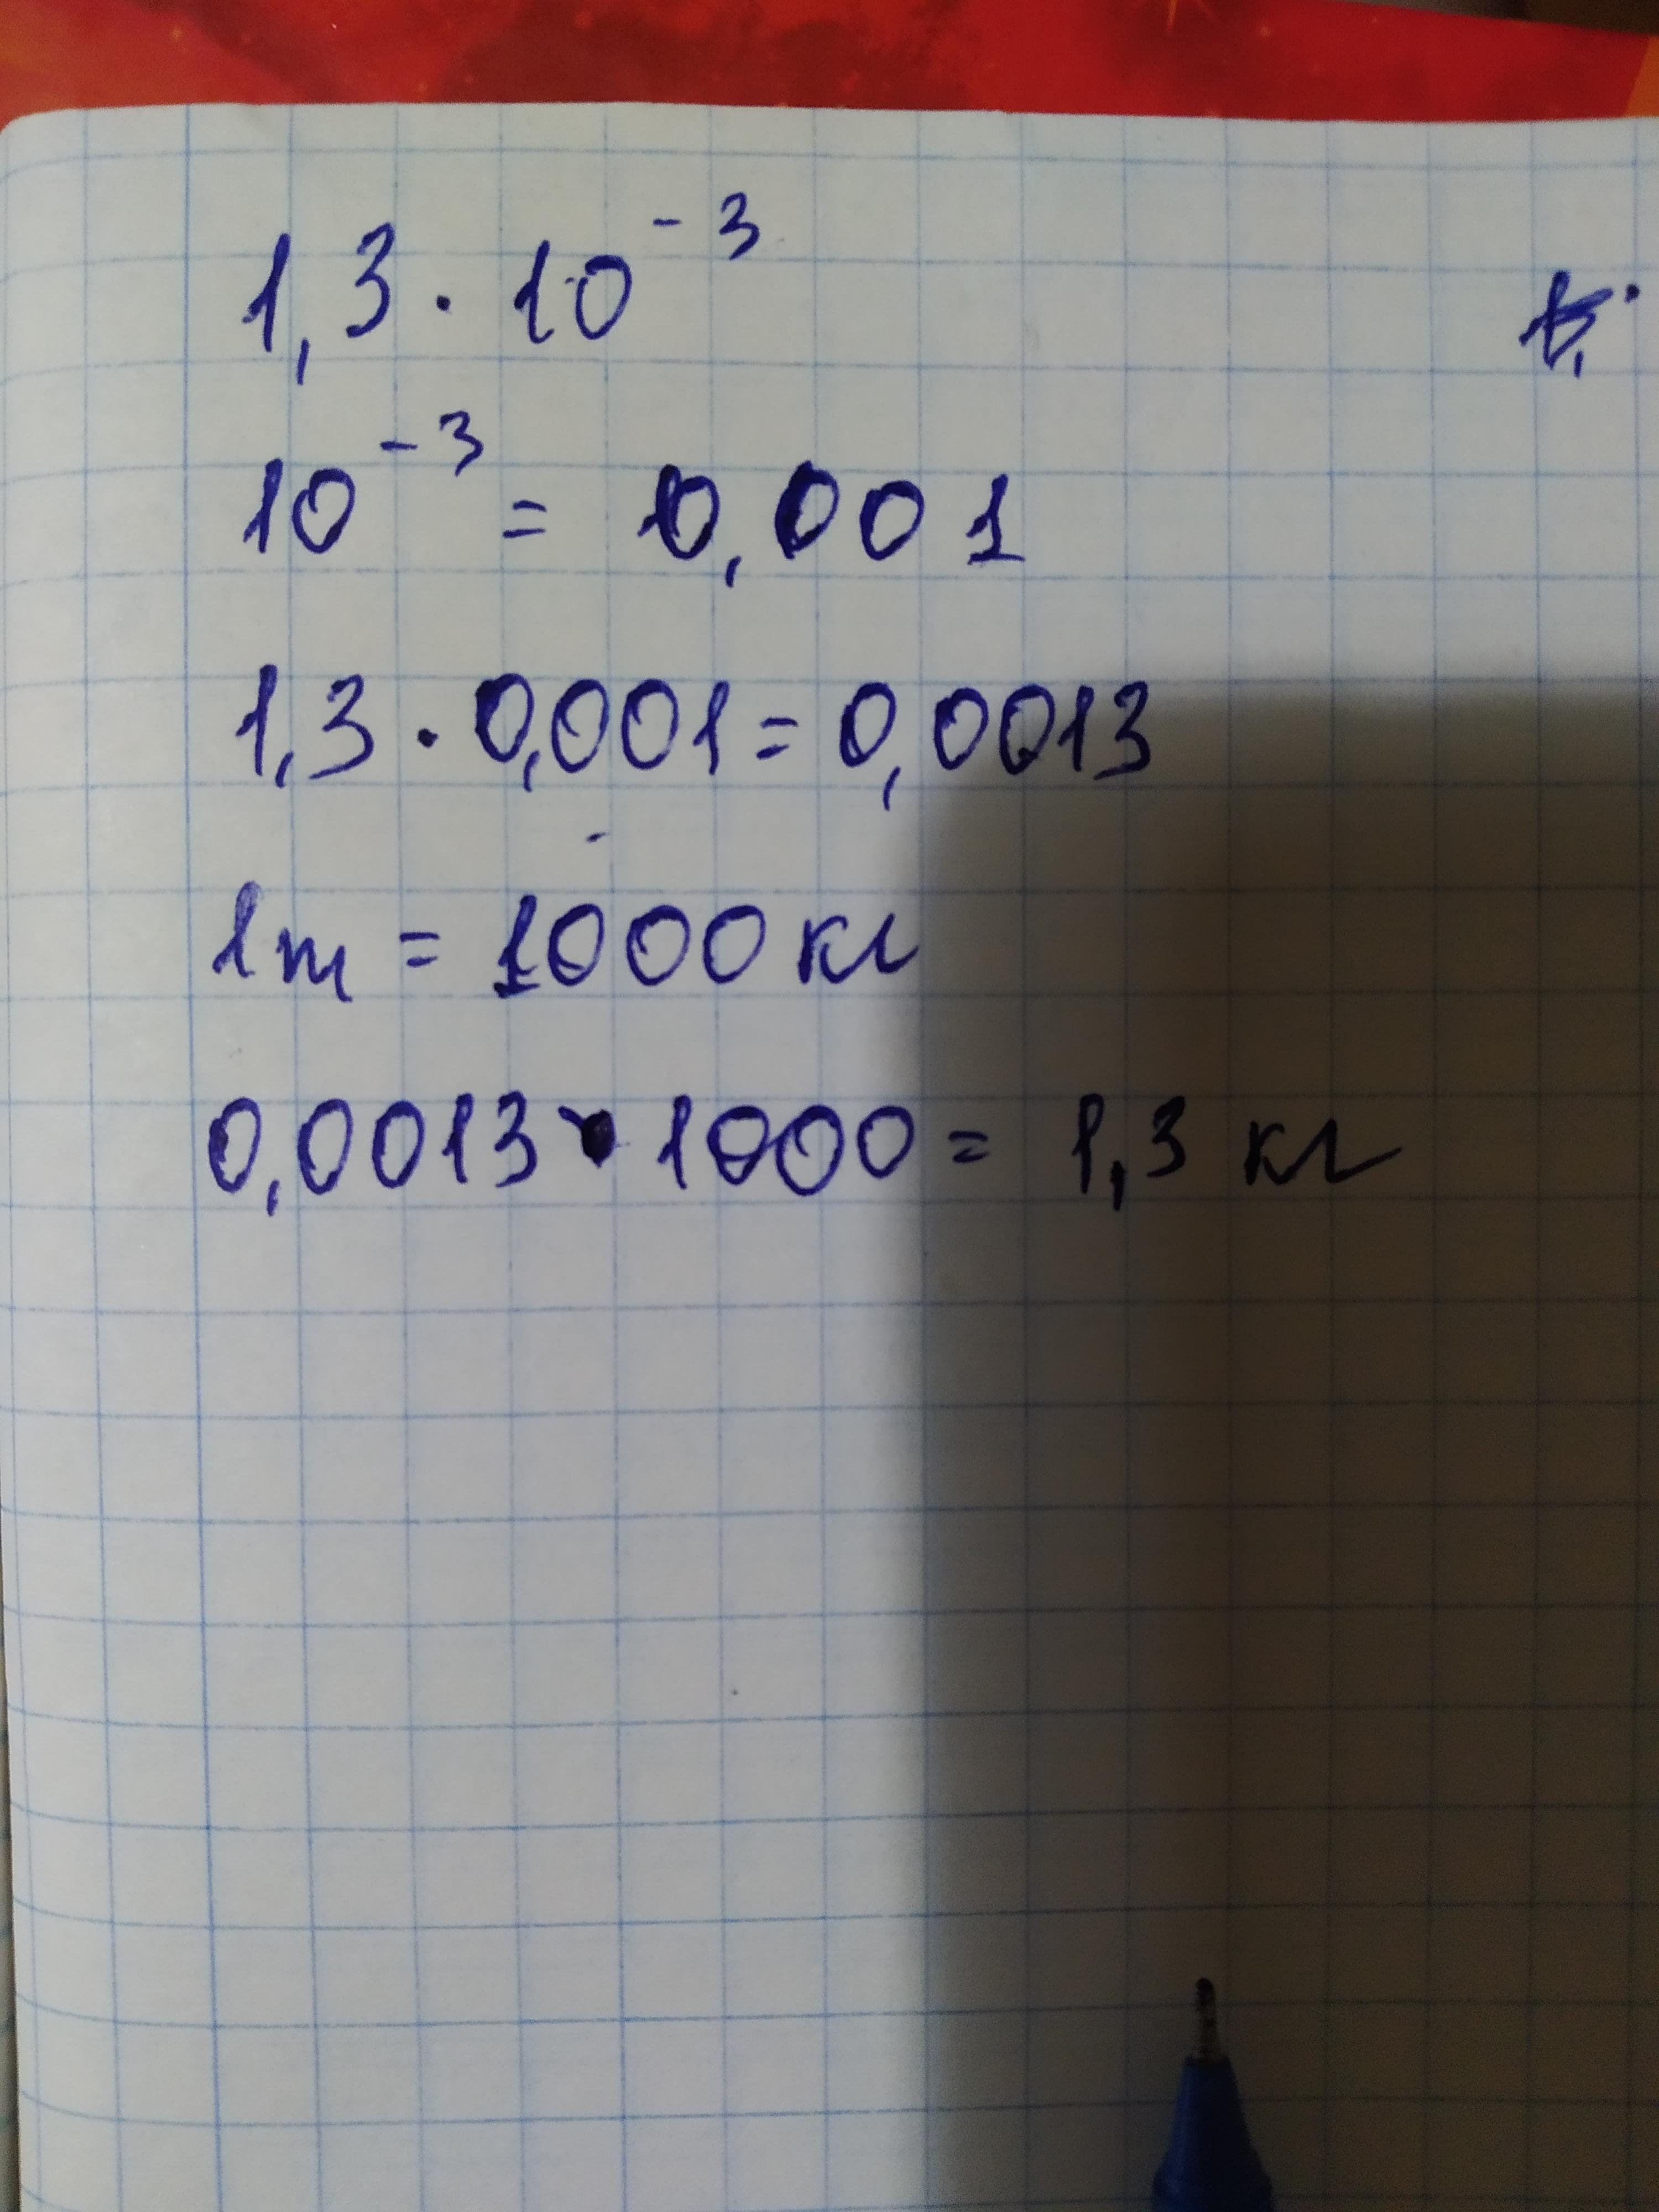 1,3 · 10⁻³
10⁻³ = 0,001
1,3 · 0,001 = 0,0013
1т = 1000 кг
0,0013 · 1000 = 1,3 кг